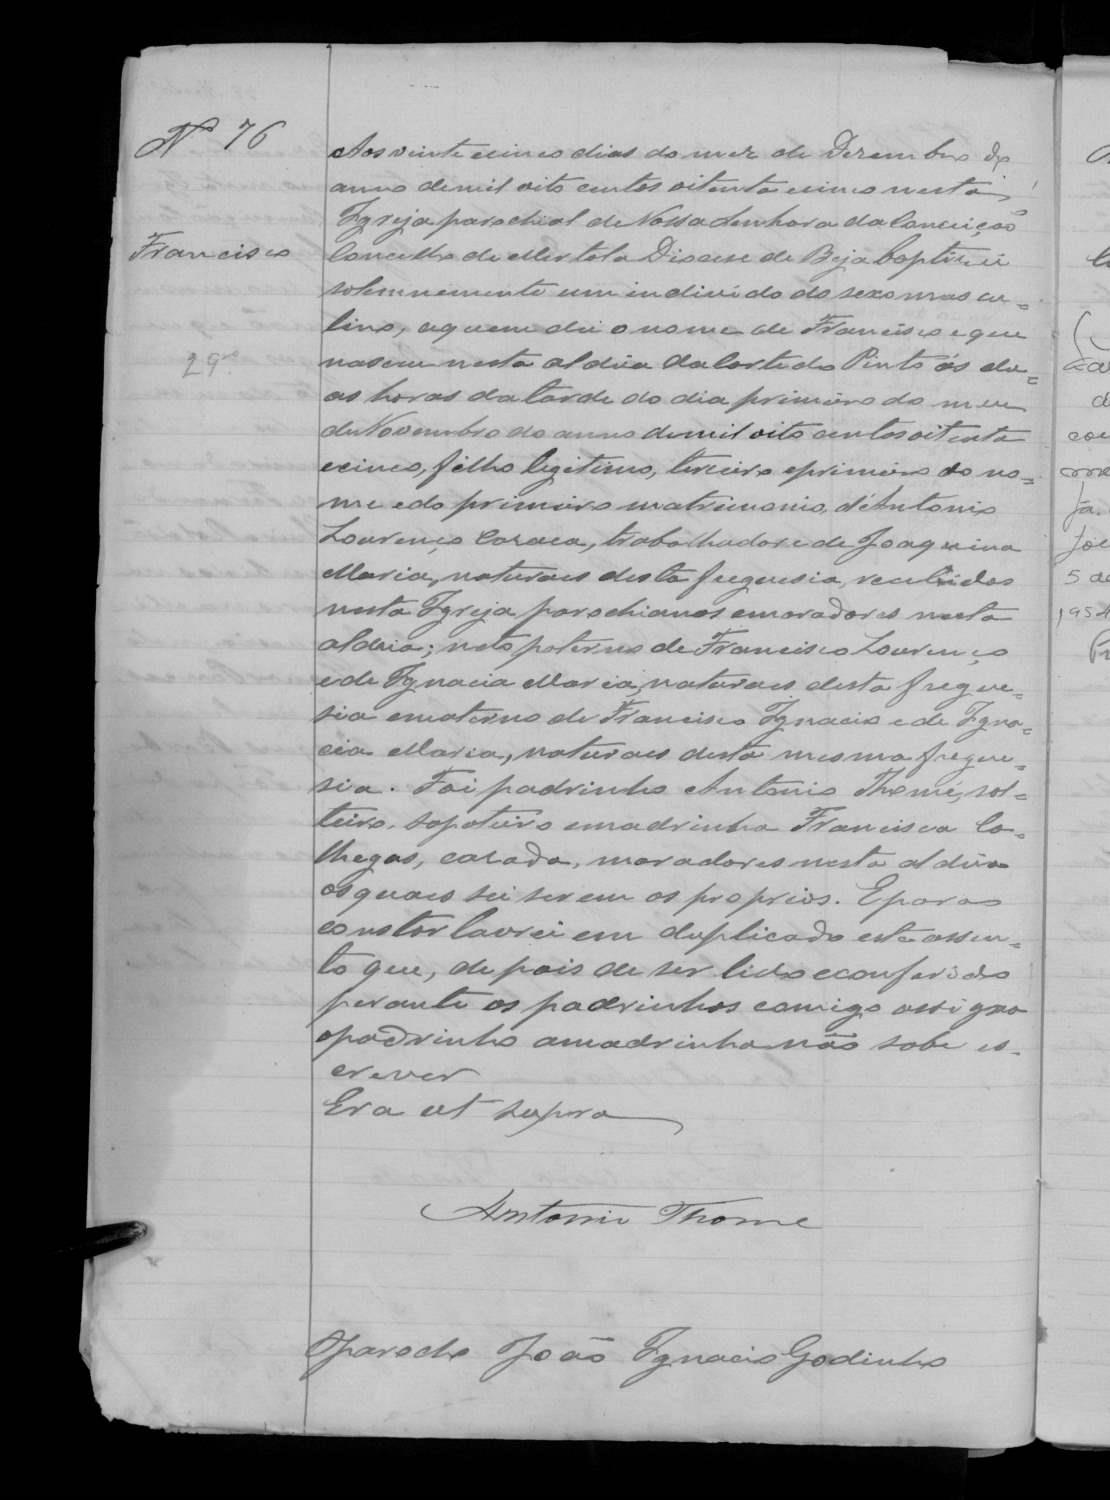 Nº 76
Francisco
29
Aos vinte e cinco dias do mez de Dezembro do
anno de mil oito centos oitenta e cinco nesta
Igreja parochial de Nossa Senhora da Conceição
Concelho de Mertola Diocese de Beja baptizei
solemnemente um individo do sexo mascu-
lino, a quem dei o nome de Francisco e que
nasceu nesta aldeia da Corte do Pinto ás du-
as horas da tarde do dia primeiro do mez
de Novembro do anno de mil oito centos oitenta
e cinco, filho legitimo, terceiro e primeiro do no-
me e do primeiro matrimonio, d'Antonio
Lourenço, trabalhador e de Joaquina
Maria, naturaes desta freguesia, recebidos
nesta Igreja parochianos e moradores nesta
aldeia; neto paterno de Francisco Lourenço
e de Ignacia Maria, naturaes desta fregue-
sia e materno de Francisco Ignacio e de Igna-
cia Maria, naturaes desta mesma fregue-
sia. Foi padrinho Antonio Thome, sol-
teiro, sapateiro e madrinha Francisca Co-
lhegas, casada, moradores nesta aldeia
os quaes sei serem os proprios. E para
constar lavrei em duplicado este assen-
to que, depois de ser lido e conferido
perante os padrinhos comigo assigna
o padrinho a madrinha não sabe es-
crever
Era ut supra
Antonio Thome
O parocho João Ignacio Godinho
5 de
1954